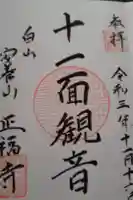 奉拝
令和三年十一月十六
十一面観音
白山
安養山
正福寺